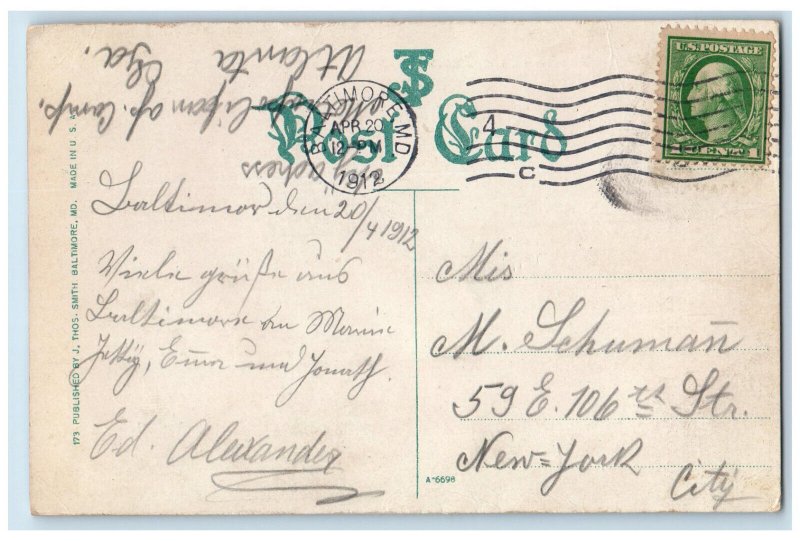 Post Card
BALTIMORE, MD.
APR 20
12-PM
1912
4
C
U.S. POSTAGE
1 CENT 1
Atlanta
Ga.
Baltimor den 20/4 1912
Viele grüße aus
Baltimore an Mamie
Emma und Jonath.
Ed. Alexander
Mis
M. Schuman̄
59 E. 106 th Str.
New=York
City
173 PUBLISHED BY J. THOS. SMITH BALTIMORE, MD. MADE IN U. S. A.
A-6698